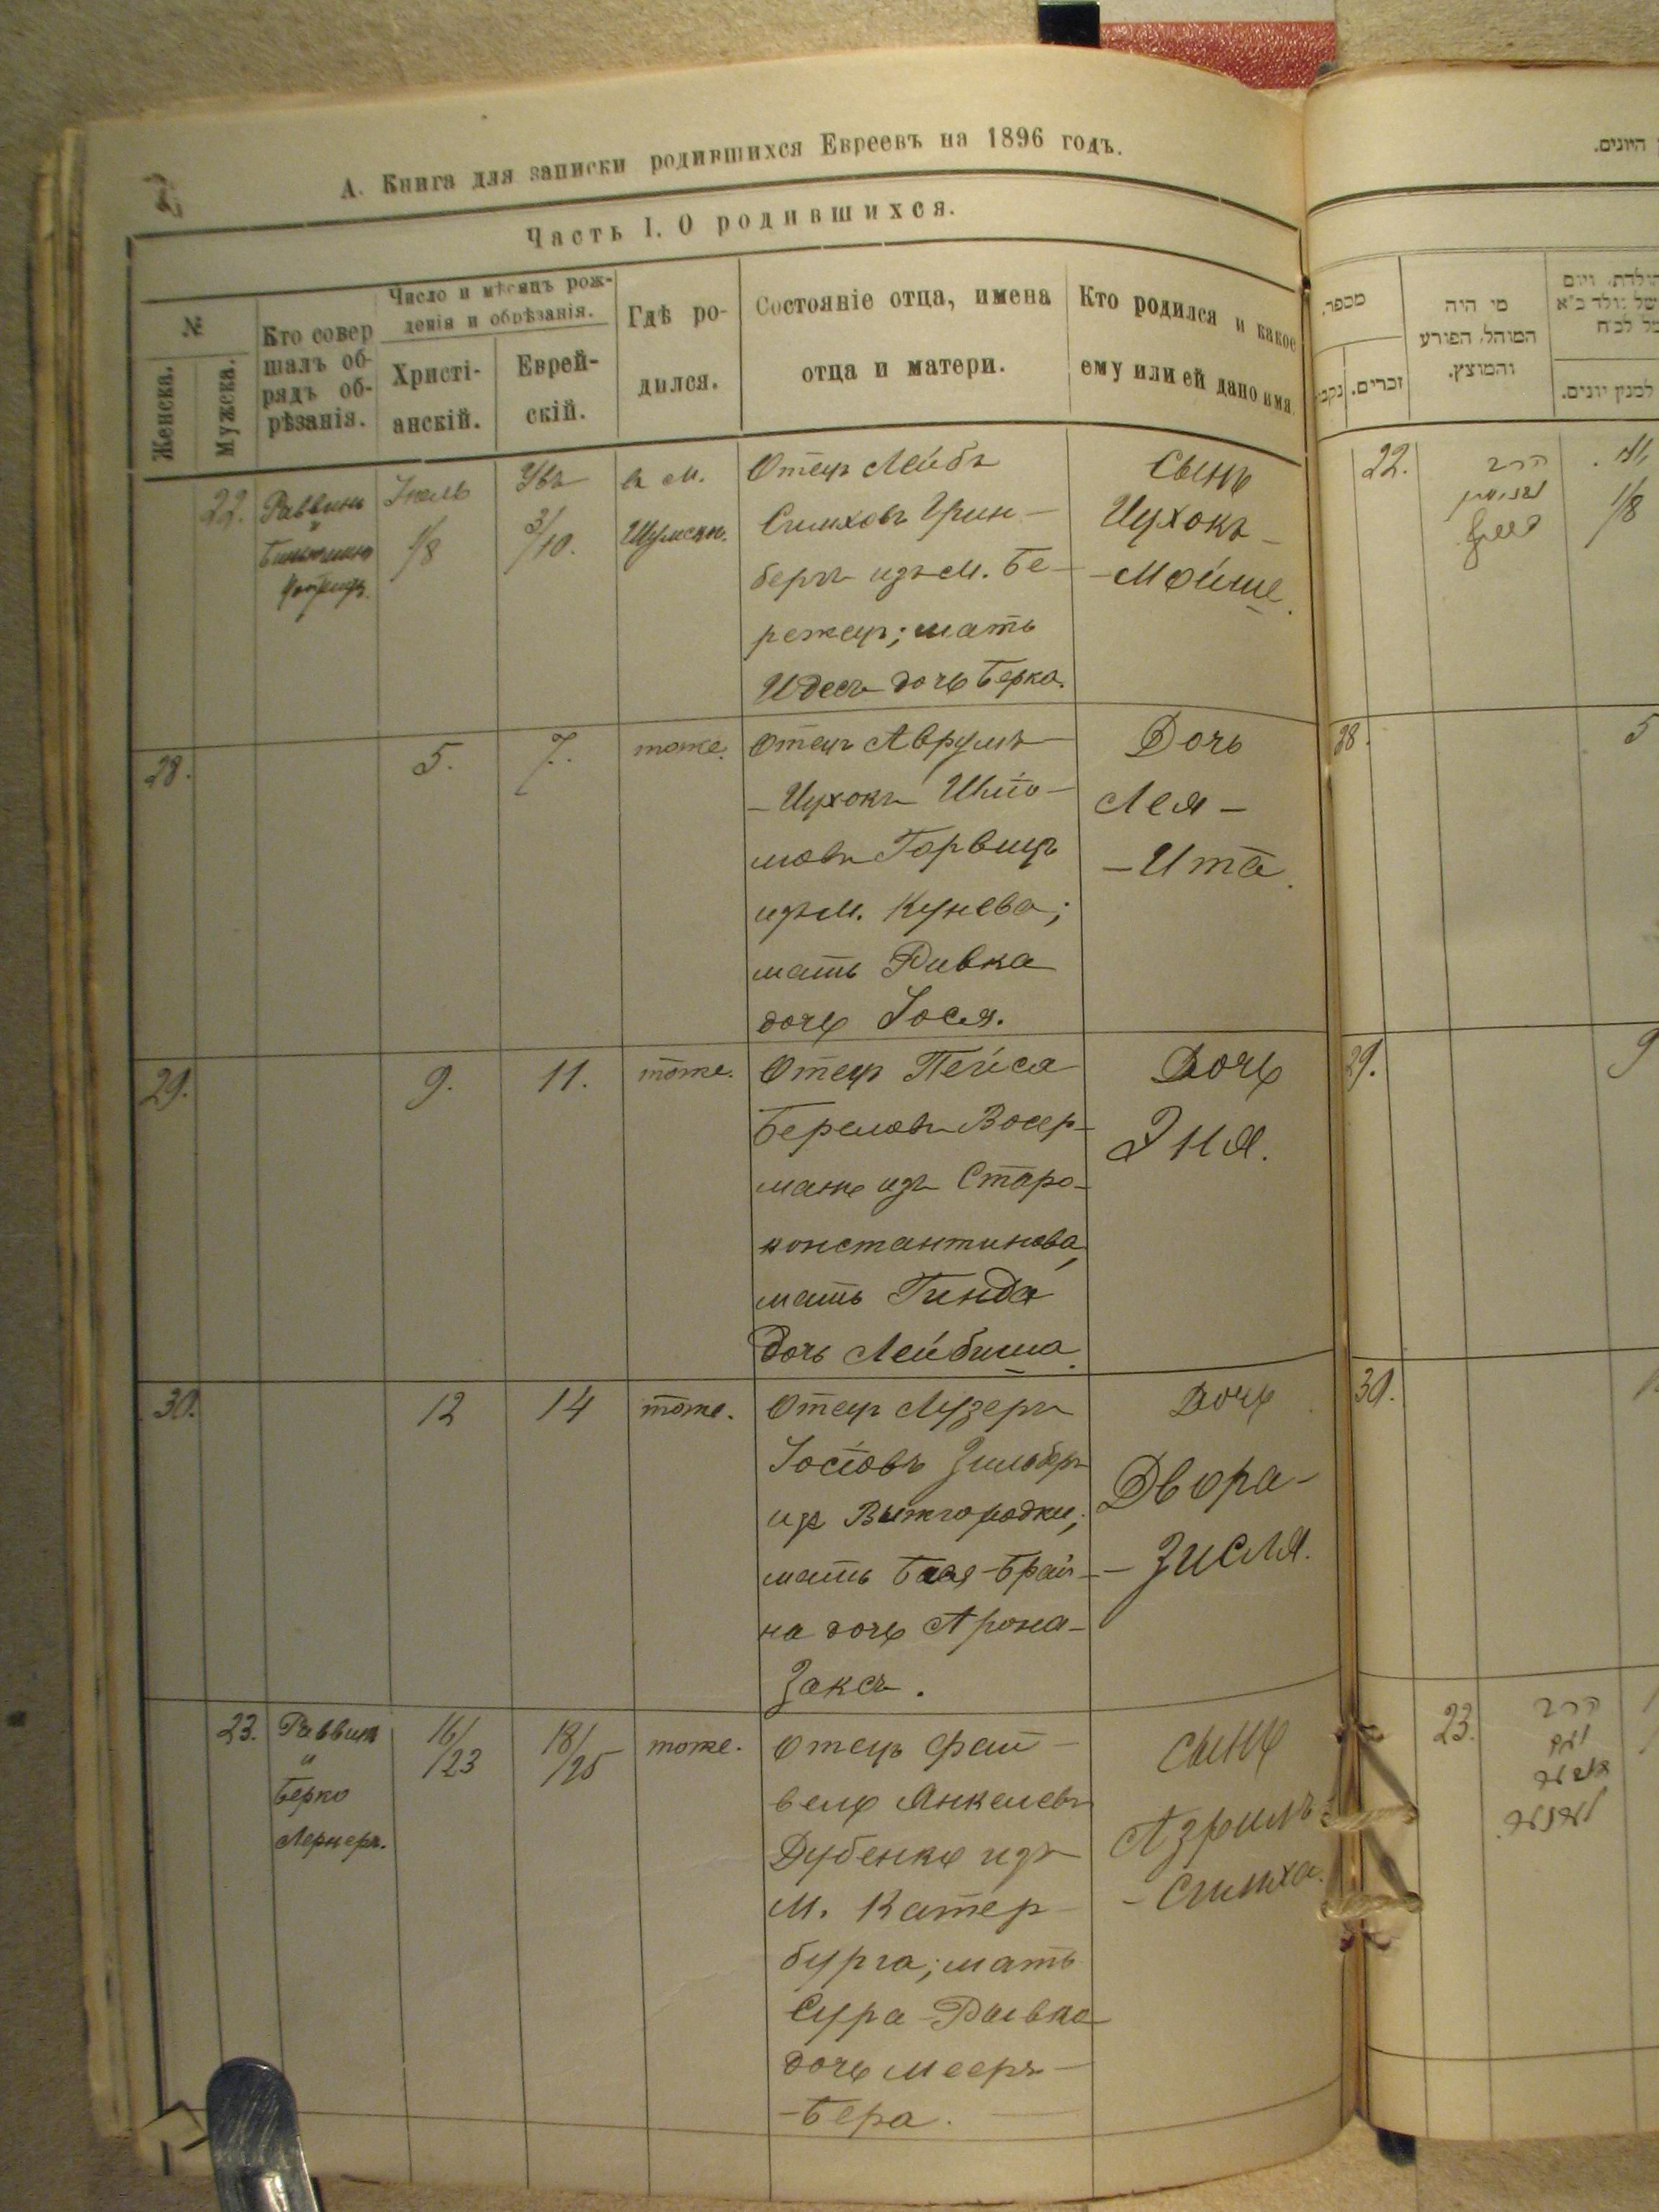 А. Книга для записки родившихся Евреевъ на 1896 годъ.
Часть I. О родившихся.
№
Женска.
Мужска.
Кто совер
шалъ об-
рядъ об-
рѣзанія.
Число и мѣсяцъ рож-
денія и обрѣзанія.
Христі-
анскій.
Еврей-
скій.
Гдѣ ро-
дился.
Состояніе отца, имена
отца и матери.
Кто родился и какое
ему или ей дано имя.
22.
Раввинъ
и
Іюль
1/8
Увъ
3/10.
в м.
Шумскъ.
Отецъ Лейбъ
Симховъ Грин-
бергъ изъ м. Бе-
режец; мать
Идесъ дочь Берка.
Сынъ
Ицхокъ-
-Мойше.
28.
5.
7.
тоже.
Отецъ Аврумъ
-Ицхокъ Шліо-
мовъ Горвицъ
изъ м. Кунева;
мать Ривка
дочь Іося.
Дочь
Лея-
-Ита.
29.
9.
11.
тоже.
Отецъ Пейса
Береловъ Восер-
манъ изъ Старо-
константинова,
мать Гинда
дочь Лейбиша.
Дочь
Эня.
30.
12
14
тоже.
Отецъ Лузеръ
Іосіовъ Зильбер
изъ Вышгородки;
мать Бася-Брай-
на дочь Арона-
Закса.
Дочь
Двора-
-Зисля.
23.
Раввинъ
и
Берко
Лернеръ.
16/
/23
18/
/25
тоже.
Отецъ Фай-
вель Янкелевъ
Дубенко изъ
м. Катер-
бурга; мать
Сура-Ривка
дочь Меера-
-Бера.
Сынъ
Азриль
-Симха.
היונים.
מספר.
זכרים.
נקב
מי היה
המוהל, הפורע
והמוצץ.
למנין יונים.
22.
הרב
1/8
28.
5
29.
9
30.
23.
הרב